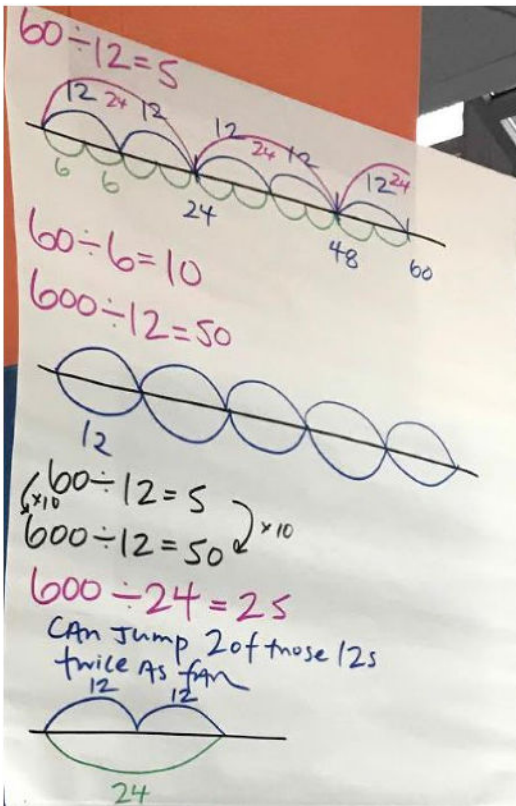 60÷12=5
12 24 12 12 24 12 12 24
6 6
24 48 60
60÷6=10
600÷12=50
12
60÷12=5
×10 ×10
600÷12=50
600÷24=25
CAN JUMP 2 of those 12s
twice As fAR
12 12
24